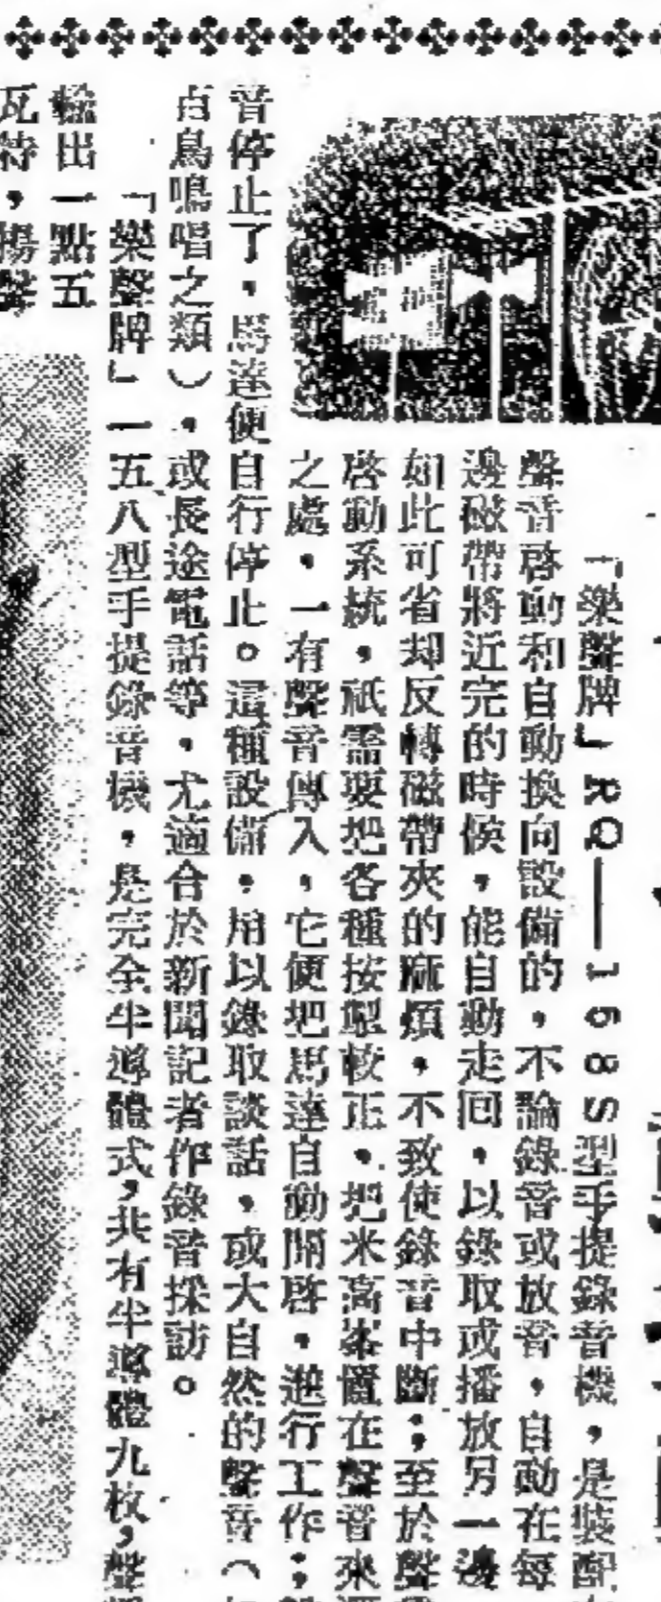 「樂聲牌」RQ——168S型手提錄音機，是裝配
聲音啓動和自動換向設備的，不論錄音或放音，自動在每
邊磁帶將近完的時候，能自動走回，以錄取或播放另一邊
如此可省却反轉磁帶夾的麻煩，不致使錄音中斷；至於聲
啓動系統，祇需要把各種按掣較正，把米高峯置在聲音來
之處，一有聲音傳入，它便把馬達自動開啓，進行工作；
音停止了，馬達便自行停止。這種設備，用以錄取談話，或大自然的聲音（
鳥鳴唱之類），或長途電話等，尤適合於新聞記者作錄音採訪。
「樂聲牌」一五八型手提錄音機，是完全半導體式，共有半導體九枚，聲
輸出一點五
瓦特，揚聲